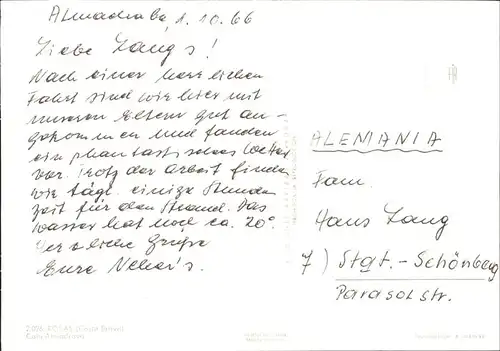 Almadraba, 1.10.66
Liebe Langs!
Nach einer herrlichen
Fahrt sind wir hier mit
unseren Eltern gut an-
gekommen und fanden
ein phantastisches Wetter
vor. Trotz der Arbeit finden
wir tägl. einige Stunden
Zeit für den Strand. Das
Wasser hat noch ca. 20°.
Herzliche Grüße
Eure
ALEMANIA
Fam.
Hans Lang
7) Stgt. - Schönberg
Parasolstr.
ROSAS (Gerona)